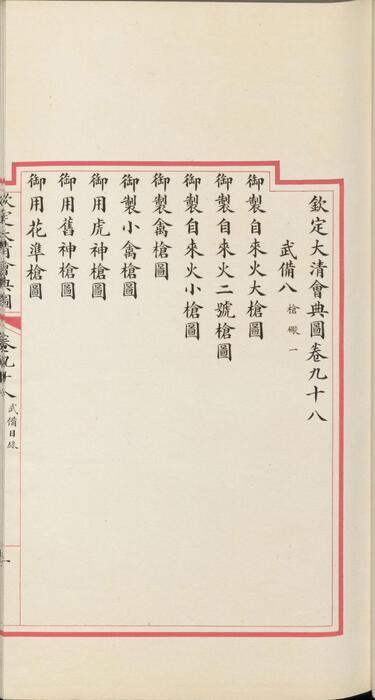 欽定大清會典圖卷九十八
武備八 槍礮一
御製自來火大槍圖
御製自來火二號槍圖
御製自來火小槍圖
御製禽槍圖
御製小禽槍圖
御用虎神槍圖
御用舊神槍圖
御用花準槍圖
欽定大清會典圖 卷九十八 武備目錄